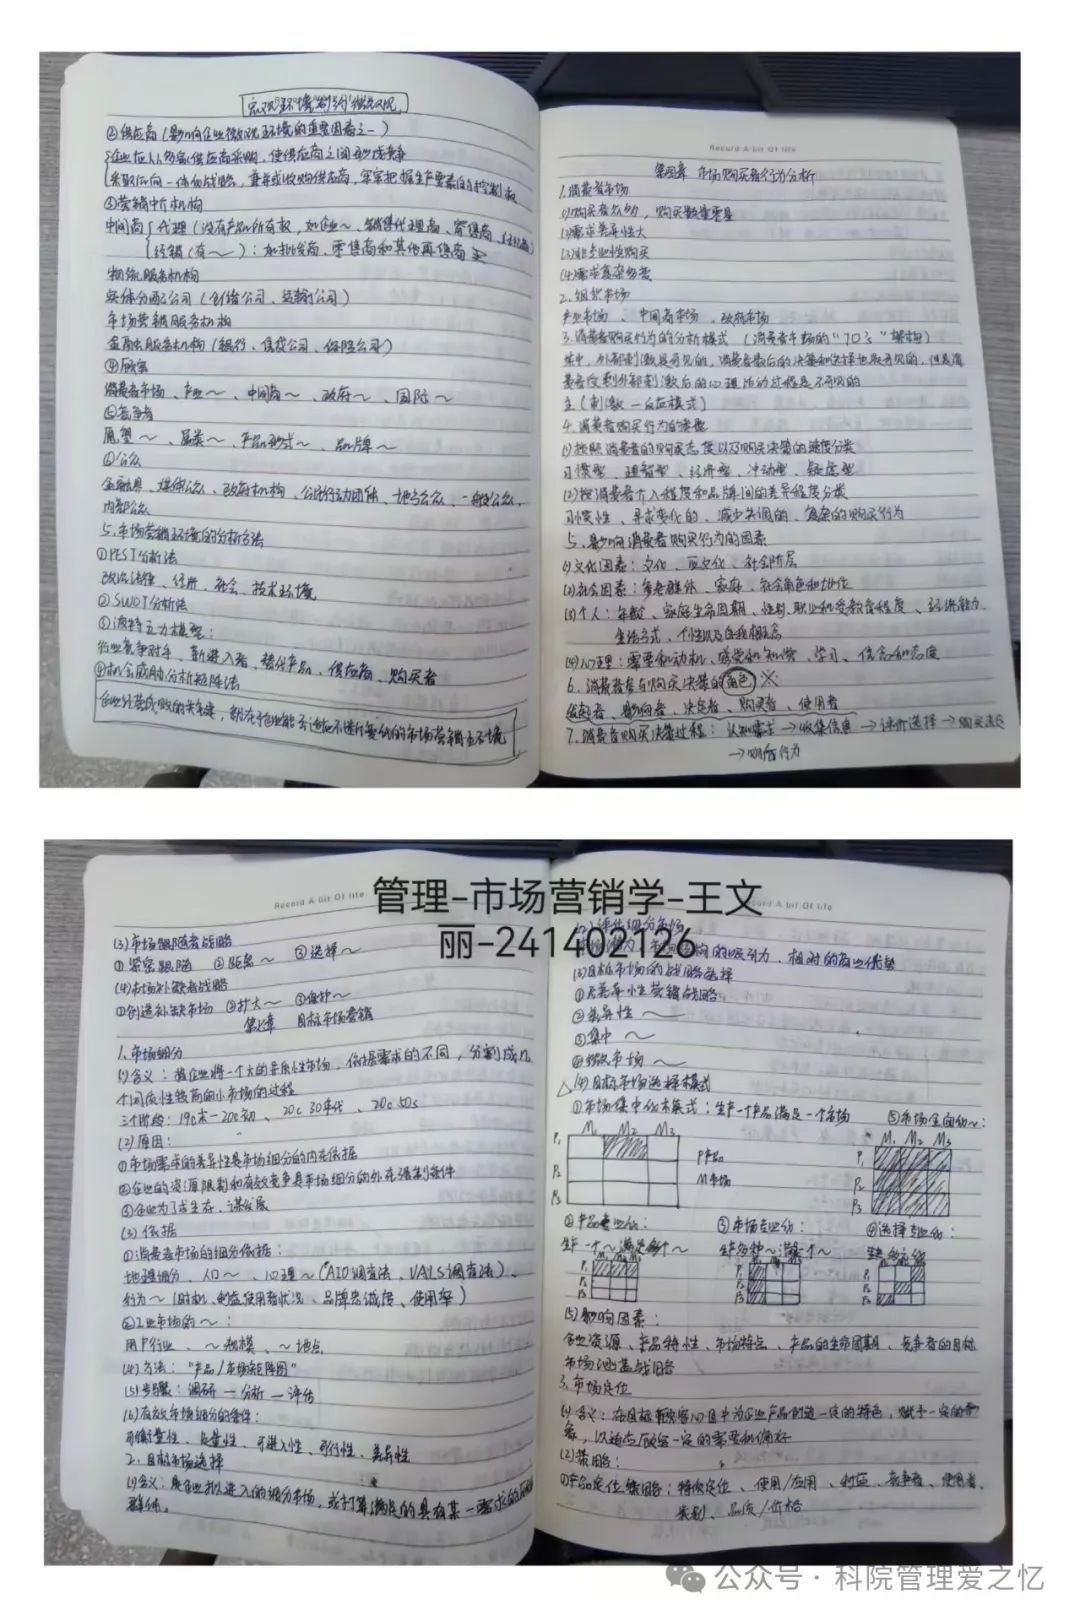 宏观环境制约微观
②供应商(影响企业微观环境的重要因素之一)
企业应从多家供应商采购,使供应商之间形成竞争
采取后向一体化战略,兼并或收购供应商,牢牢把握生产要素的控制权
③营销中介机构
中间商 代理(没有产品所有权,如企业~、销售代理商、寄售商、
经销(有~):如批发商、零售商和其他再售商
物流服务机构
实体分配公司(仓储公司、运输公司)
市场营销服务机构
金融服务机构(银行、信贷公司、保险公司)
④顾客
消费者市场、产业~、中间商~、政府~、国际~
⑤竞争者
愿望~、属类~、产品形式~、品牌~
⑥公众
金融界、媒体公众、政府机构、公民行动团体、地方公众、一般公众、
内部公众
5、市场营销环境的分析方法
①PEST分析法
政治法律、经济、社会、技术环境
②SWOT分析法
③波特五力模型:
行业竞争对手、新进入者、替代产品、供应商、购买者
④机会威胁分析矩阵法
企业经营成败的关键,就在于企业能否适应不断变化的市场营销环境
Record A bit Of life
第四章 市场购买者行为分析
1.消费者市场
(1)购买者众多,购买数量零星
(2)需求差异性大
(3)非专业性购买
(4)需求复杂多变
2.组织市场
产业市场、中间商市场、政府市场
3.消费者购买行为的分析模式(消费者市场的"7O's"架构)
其中,外部刺激是可见的,消费者最后的决策和选择也是可见的,但是消
费者受到外部刺激后的心理活动过程是不可见的
(刺激—反应模式)
4.消费者购买行为的类型
(1)按照消费者的购买态度以及购买决策的速度分类
习惯型、理智型、经济型、冲动型、疑虑型
(2)按消费者介入程度和品牌间的差异程度分类
习惯性、寻求变化的、减少失调的、复杂的购买行为
5、影响消费者购买行为的因素
(1)文化因素:文化、亚文化、社会阶层
(2)社会因素:参考群体、家庭、社会角色和地位
(3)个人:年龄、家庭生命周期、性别、职业和受教育程度、经济能力、
生活方式、个性以及自我概念
(4)心理:需要和动机、感觉和知觉、学习、信念和态度
6.消费者参与购买决策的角色
发起者、影响者、决定者、购买者、使用者
7.消费者购买决策过程:认知需求→收集信息→评价选择→购买决定
→购后行为
管理-市场营销学-王文
丽-241402126
Record A bit Of life
(3)市场跟随者战略
①紧密跟随 ②距离~ ③选择~
(4)市场补缺者战略
①创造补缺市场 ②扩大~ ③保护~
第七章 目标市场营销
1.市场细分
(1)含义:指企业将一个大的异质性市场,依据需求的不同,分割成几
个同质性较高的小市场的过程
三个阶段:19c末—20c初、20c 30年代、20c 50s
(2)原因:
①市场需求的差异性是市场细分的内在依据
②企业的资源限制和有效竞争是市场细分的外在强制条件
③企业为了求生存、谋发展
(3)依据
①消费者市场的细分依据:
地理细分、人口~、心理~(AIO调查法、VALS调查法)、
行为~(时机、利益、使用者状况、品牌忠诚度、使用率)
②工业市场的~:
用户行业、~规模、~地点
(4)方法:"产品/市场矩阵图"
(5)步骤:调研—分析—评估
(6)有效市场细分的条件:
可衡量性、足量性、可进入性、可行性、差异性
2.目标市场选择
(1)含义:是企业拟进入的细分市场,或打算满足的具有某一需求的
群体。
Record A bit Of life
(2)评估细分市场
的吸引力、相对的商业优势
(3)目标市场的战略选择
①无差异性营销战略
②差异性~
③集中~
④微市场~
(4)目标市场选择模式
①市场集中化模式:生产一个产品满足一个市场
⑤市场全面化~:
M1 M2 M3
P1
P2
P3
P产品
M市场
M1 M2 M3
P1
P2
P3
②产品专业化:
生产一个~满足多个~
③市场专业化:
生产多种~满足一个~
④选择专业化:
P1
P2
P3
P1
P2
P3
P1
P2
P3
(5)影响因素:
企业资源、产品特性、市场特点、产品的生命周期、竞争者的目标
市场涵盖战略
3.市场定位
(1)含义:在目标顾客心目中为企业产品创造一定的特色,赋予一定的形
象,以适应顾客一定的需要和偏好
(2)策略:
①产品定位策略:特征定位、使用/应用、利益、竞争者、使用者、
类别、品质/价格
公众号·科院管理爱之忆